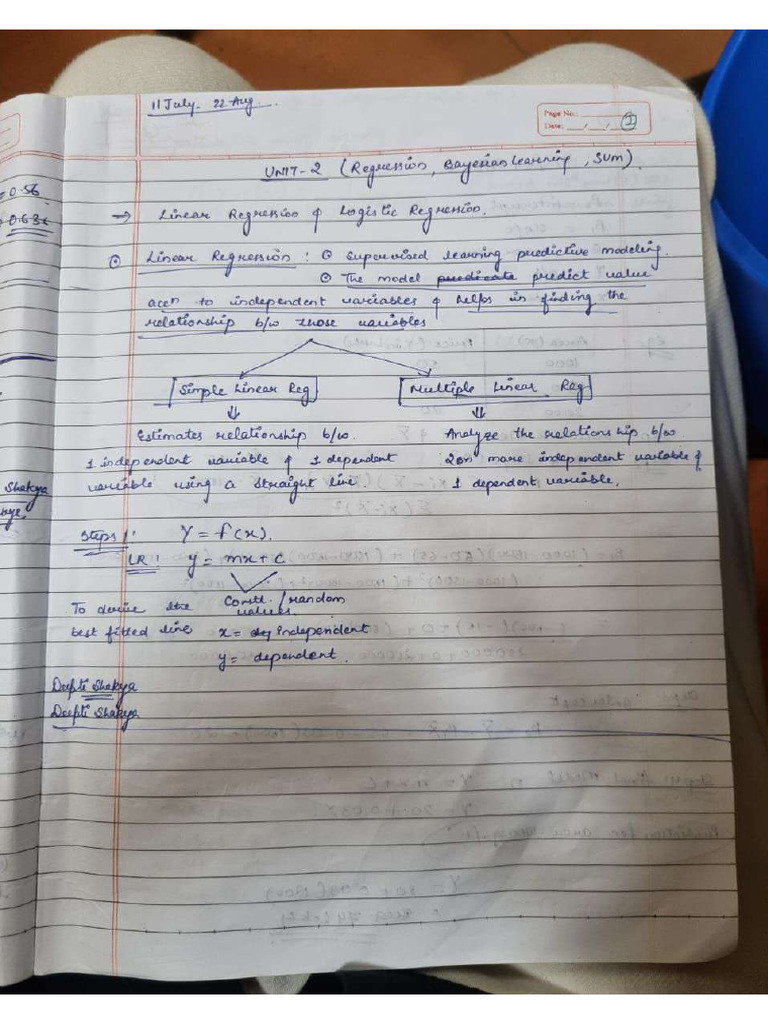 11 July. 22 Aug.
Page No.:
Date: __/__/__ 1
UNIT-2 (Regression, Bayesian Learning, SVM).
→ Linear Regression & Logistic Regression.
⊙ Linear Regression : ⊙ Supervised learning predictive modeling.
⊙ The model predicate predict value
accn to independent variables & helps in finding the
relationship b/w those variables
Simple Linear Reg
Multiple Linear Reg
⇓ ⇓
Estimates relationship b/w.
1 independent variable & 1 dependent
variable using a straight line.
Analyze the relationship b/w.
2 or more independent variable &
1 dependent variable.
Steps 1: Y = f(x).
LR: y = mx + c
Constt. / random
values.
To derive the
best fitted line
x = independent
y = dependent.
Deepti Shakya
Deepti Shakya
=0.56
0.636
Shakya